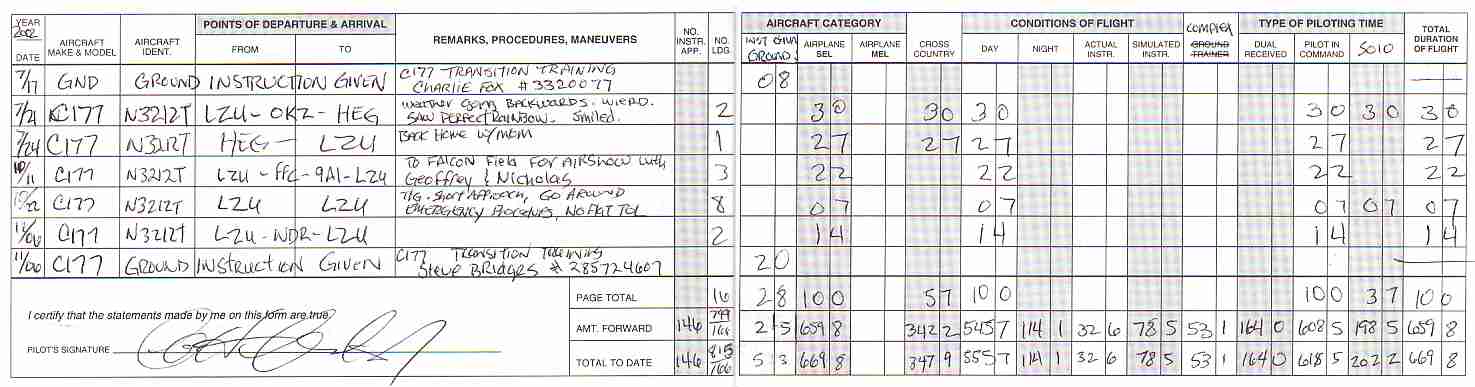 YEAR 2002 DATE AIRCRAFT MAKE & MODEL AIRCRAFT IDENT. POINTS OF DEPARTURE & ARRIVAL FROM TO REMARKS, PROCEDURES, MANEUVERS NO. INSTR. APP. NO. LDG. INST GIVN GROUND AIRCRAFT CATEGORY AIRPLANE SEL AIRPLANE MEL CROSS COUNTRY CONDITIONS OF FLIGHT DAY NIGHT ACTUAL INSTR. SIMULATED INSTR. COMPLEX GROUND TRAINER TYPE OF PILOTING TIME DUAL RECEIVED PILOT IN COMMAND SOLO TOTAL DURATION OF FLIGHT
7/17 GND GROUND INSTRUCTION GIVEN C177 TRANSITION TRAINING 0 8
CHARLIE FOX # 3320077
7/21 C177 N3212T LZU - OKZ - HEG WEATHER GOING BACKWARDS. WIERD. 2 3 0 3 0 3 0 3 0 3 0 3 0
SAW PERFECT RAINBOW. Smiled.
7/24 C177 N3212T HEG - LZU BACK HOME W/MOM 1 2 7 2 7 2 7 2 7 2 7
10/11 C177 N3212T LZU - FFC - 9A1 - LZU TO FALCON Field FOR AIRSHOW with 3 2 2 2 2 2 2 2 2
Geoffrey & Nicholas
10/22 C177 N3212T LZU LZU T/G. Short APPROACH, GO AROUND 8 0 7 0 7 0 7 0 7 0 7
EMERGENCY
11/06 C177 N3212T LZU - WDR - LZU 2 1 4 1 4 1 4 1 4
11/06 C177 GROUND INSTRUCTION GIVEN C177 TRANSITION TRAINING 2 0
Steve BRIDGES # 285724607
PAGE TOTAL 16 2 8 10 0 5 7 10 0 10 0 3 7 10 0
I certify that the statements made by me on this form are true.
AMT. FORWARD 146 799/766 2 5 659 8 342 2 545 7 114 1 32 6 78 5 53 1 164 0 608 5 198 5 659 8
PILOT'S SIGNATURE
TOTAL TO DATE 146 815/766 5 3 669 8 347 9 555 7 114 1 32 6 78 5 53 1 164 0 618 5 202 2 669 8